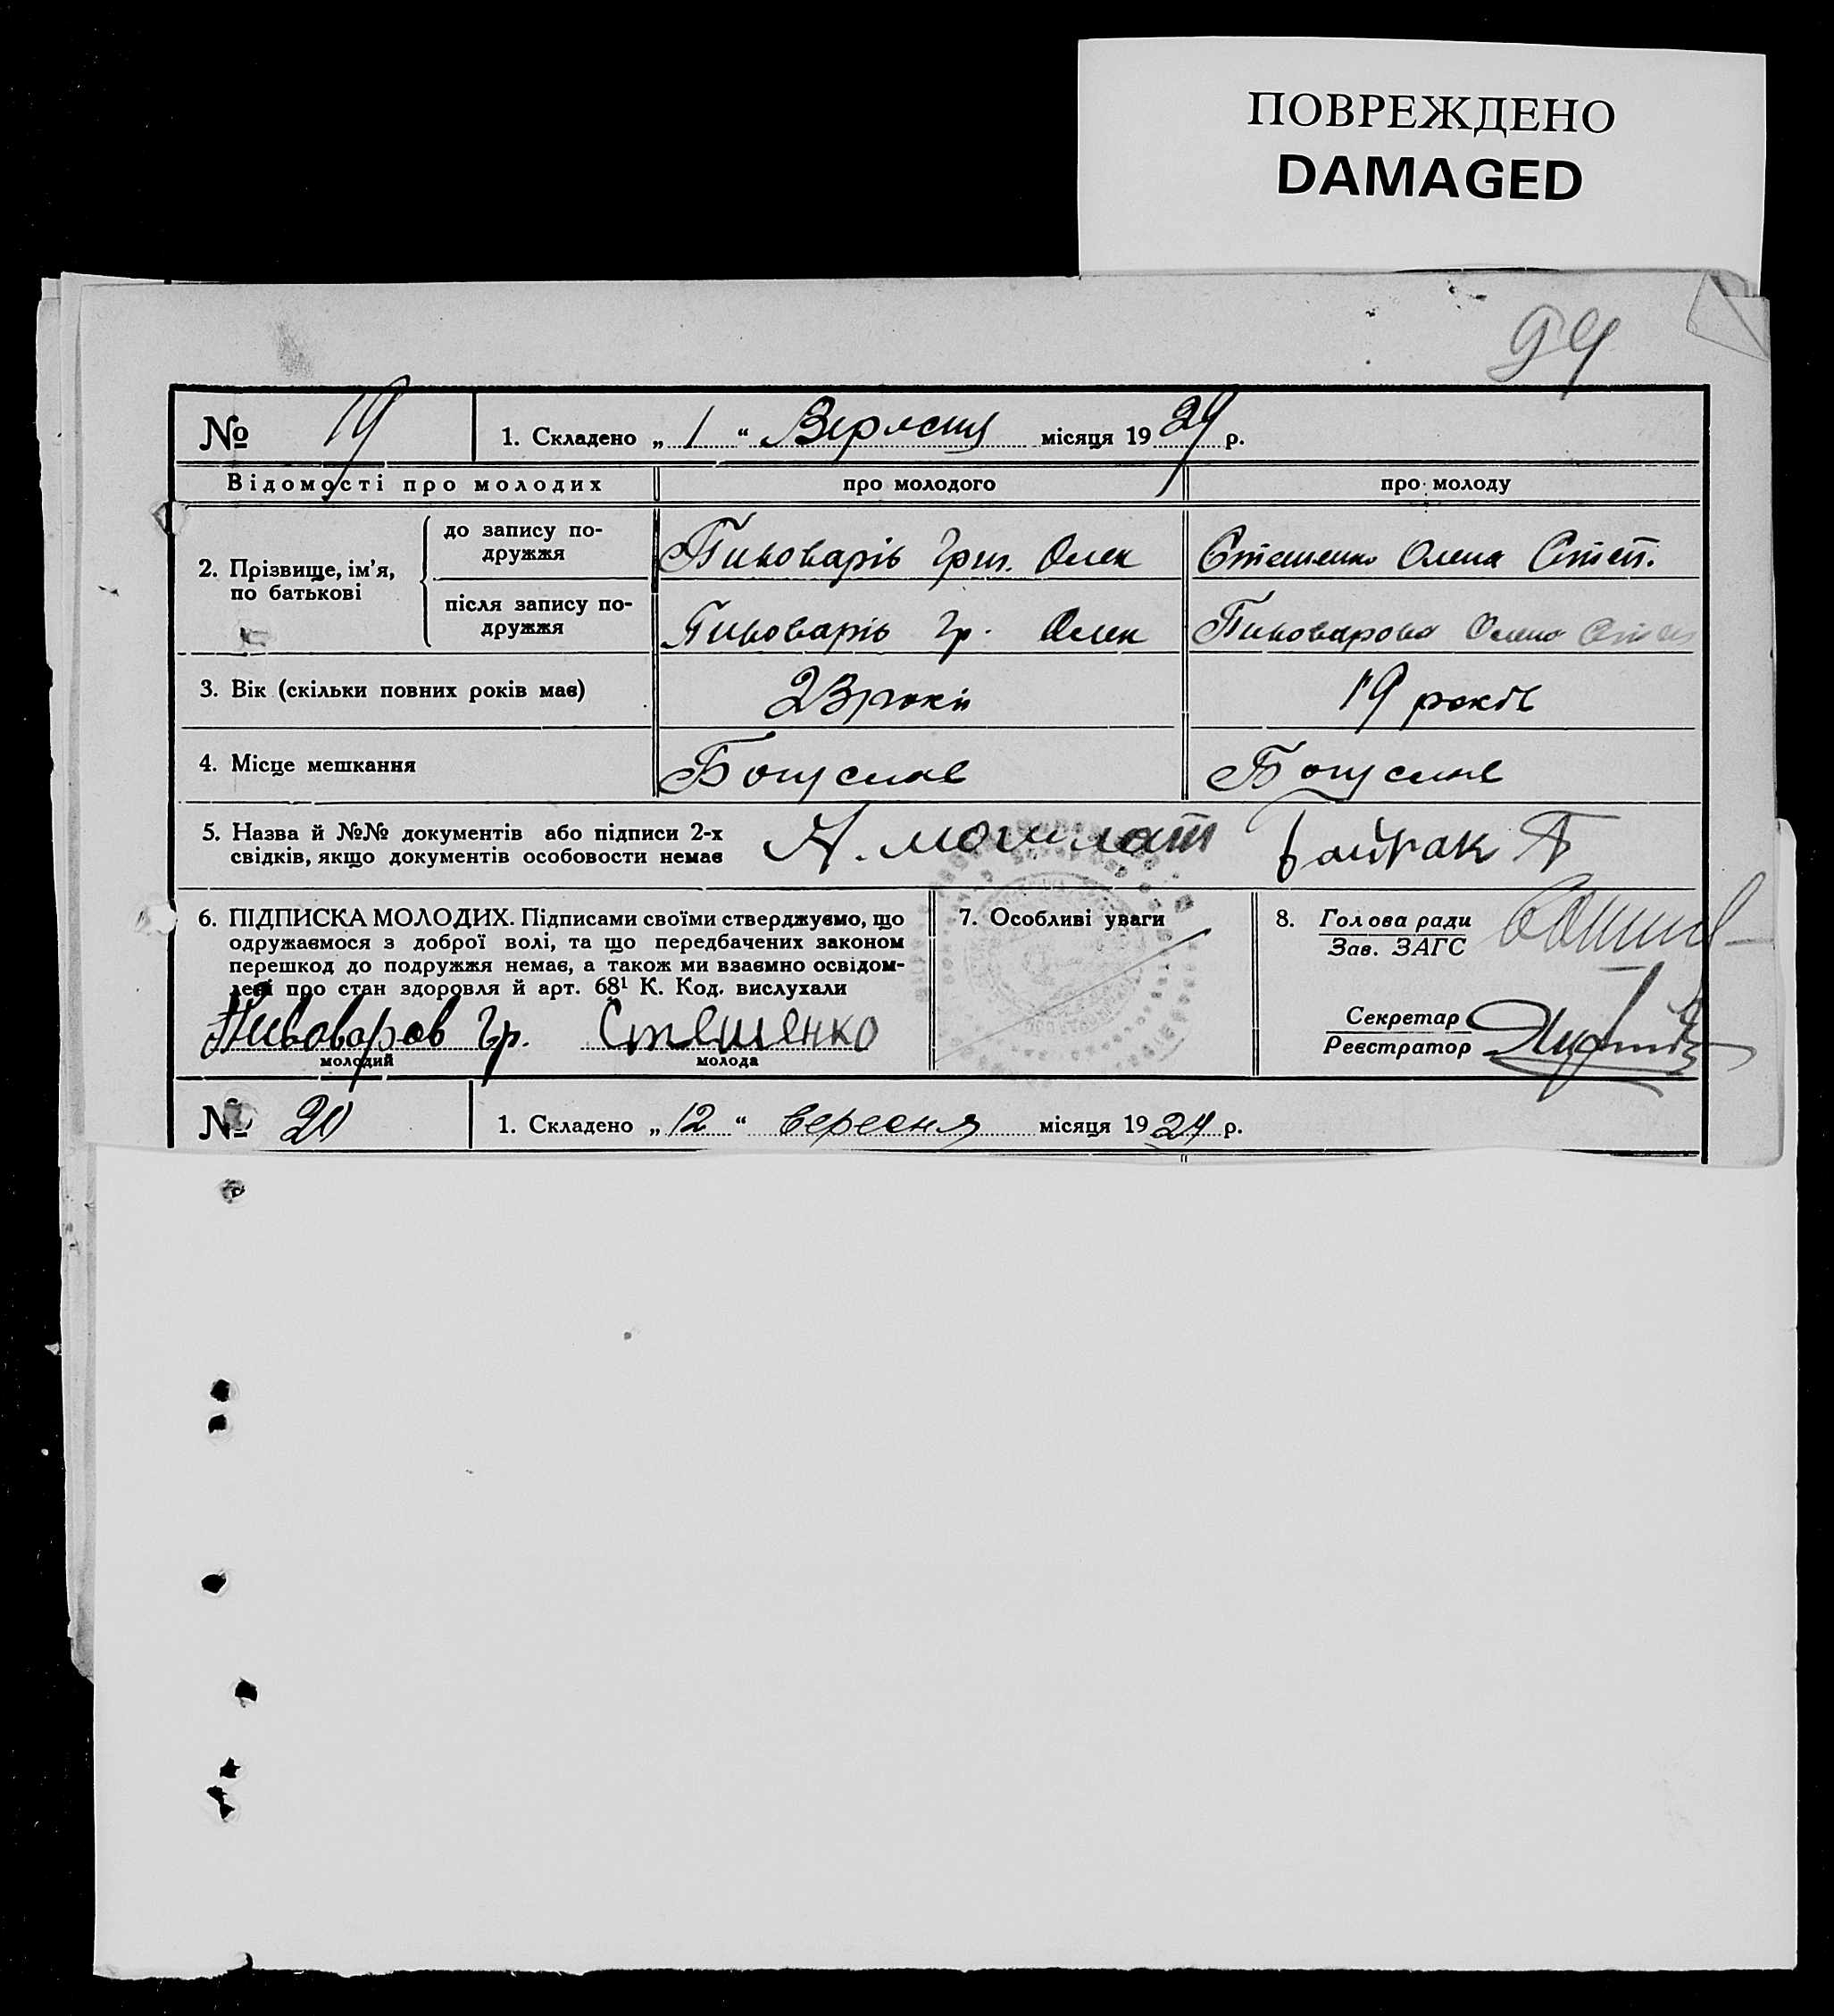 ПОВРЕЖДЕНО
DAMAGED
94
№ 19 1. Складено „ 1 “ Вересня місяця 1929 р.
Відомості про молодих про молодого про молоду
2. Прізвище, ім’я, по батькові
до запису подружжя Пивоварів Григ. Олек Стешенко Олена Степ.
після запису подружжя Пивоварів Гр. Олек Пивоварова Олена
3. Вік (скільки повних років має) 23 роки 19 років
4. Місце мешкання Богуслав Богуслав
5. Назва й №№ документів або підписи 2-х
свідків, якщо документів особовости немає
Байрак П
6. ПІДПИСКА МОЛОДИХ. Підписами своїми стверджуємо, що
одружаємося з доброї волі, та що передбачених законом
перешкод до подружжя немає, а також ми взаємно освідом-
лені про стан здоровля й арт. 68¹ К. Код. вислухали
Пивоваров Гр. Стешенко
молодий молода
7. Особливі уваги
8. Голова ради
Зав. ЗАГС
Секретар
Реєстратор
№ 20 1. Складено „ 12 “ вересня місяця 1929 р.